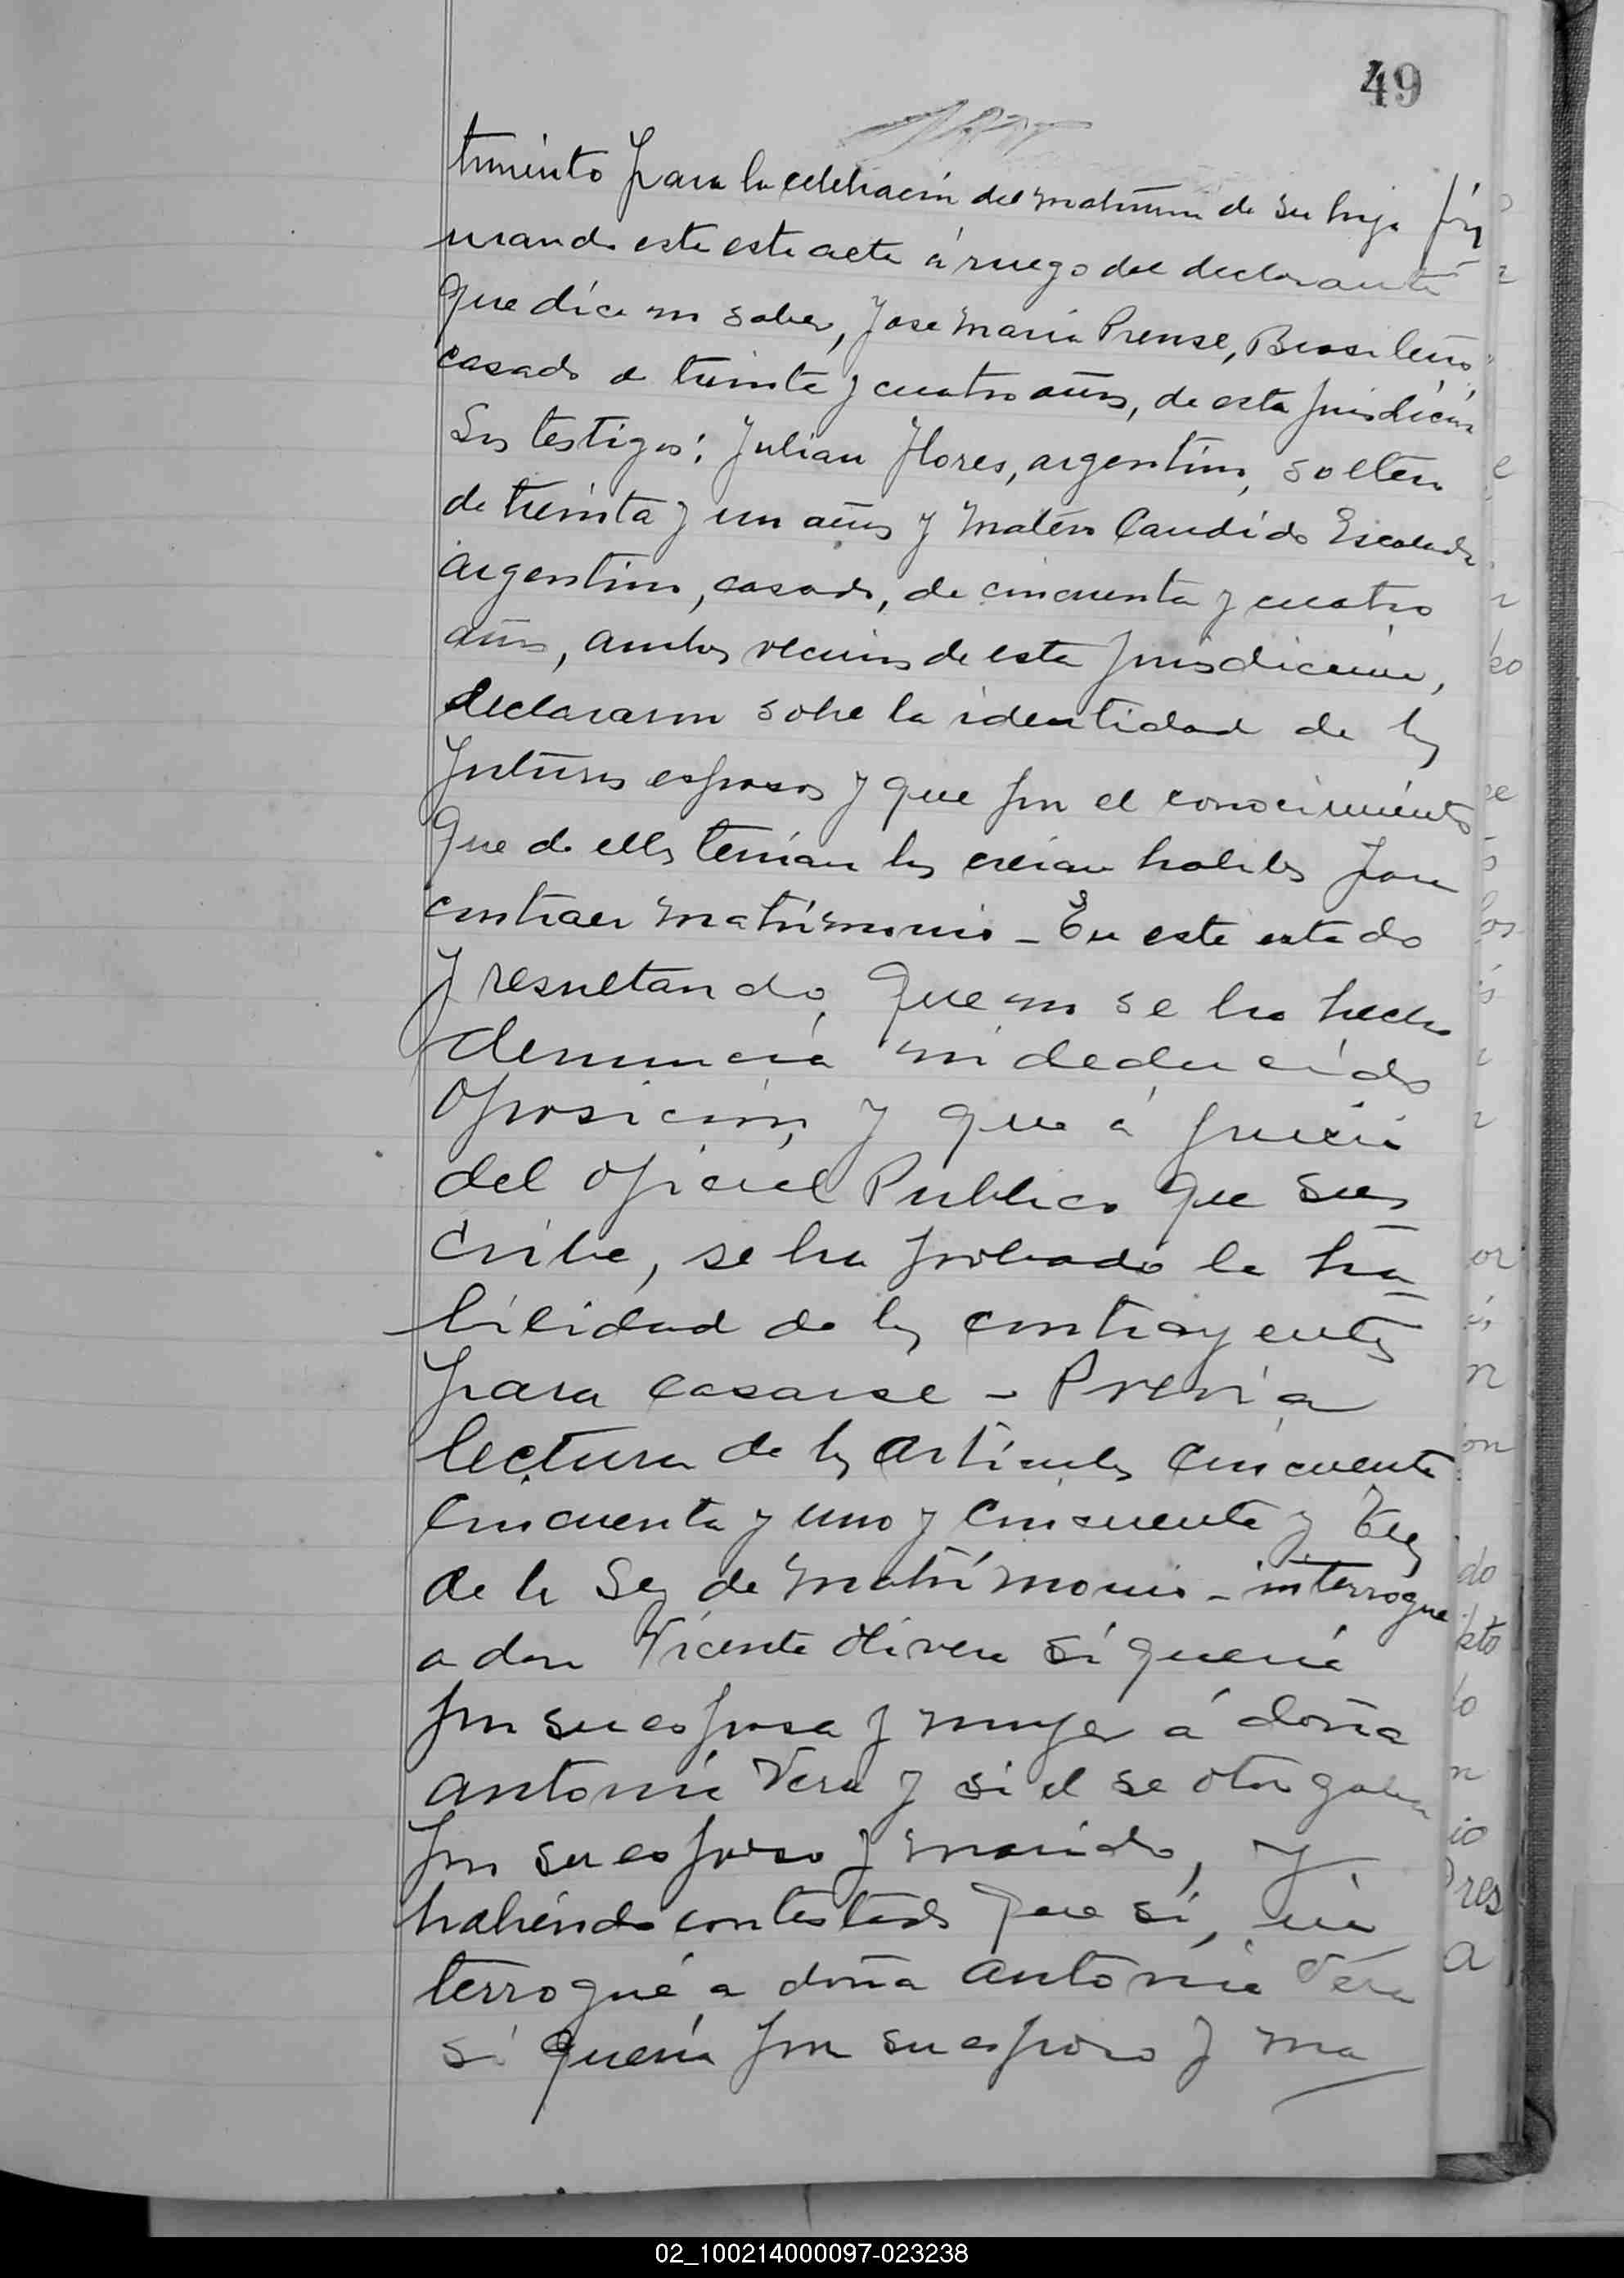 49
timiento para la celebración del matrimonio de su hija fir
mando este este acta á ruego del declarante
que dice no saber, Jose Maria Prense, Brasileño
casado de treinta y cuatro años, de esta jurisdicción
Los testigos: Julian Flores, argentino, soltero
de treinta y un años y Matéo Candido Escalada
argentino, casado, de cincuenta y cuatro
años, ambos vecinos de esta jurisdiccion,
declararon sobre la identidad de los
futuros esposos y que por el conocimiento
que de ellos tenian los creian habiles para
contraer matrimonio - En este estado
y resultando, que no se ha hecho
denuncia ni deducido
oposicion, y que á juicio
del oficial Publico que sus
cribe, se ha probado la ha
bilidad de los contrayentes
para casarse - Previa
lectura de los articulos cincuenta
cincuenta y uno y cincuenta y tres
de la Ley de matrimonio - interrogue
a don Vicente Olivera si queria
por su esposa y mujer á doña
antonia Vera y si el se otorgaba
por su esposo y marido, y
habiendo contestado que si, in
terrogué a doña antonia Vera
si queria por su esposo y ma
02_100214000097-023238